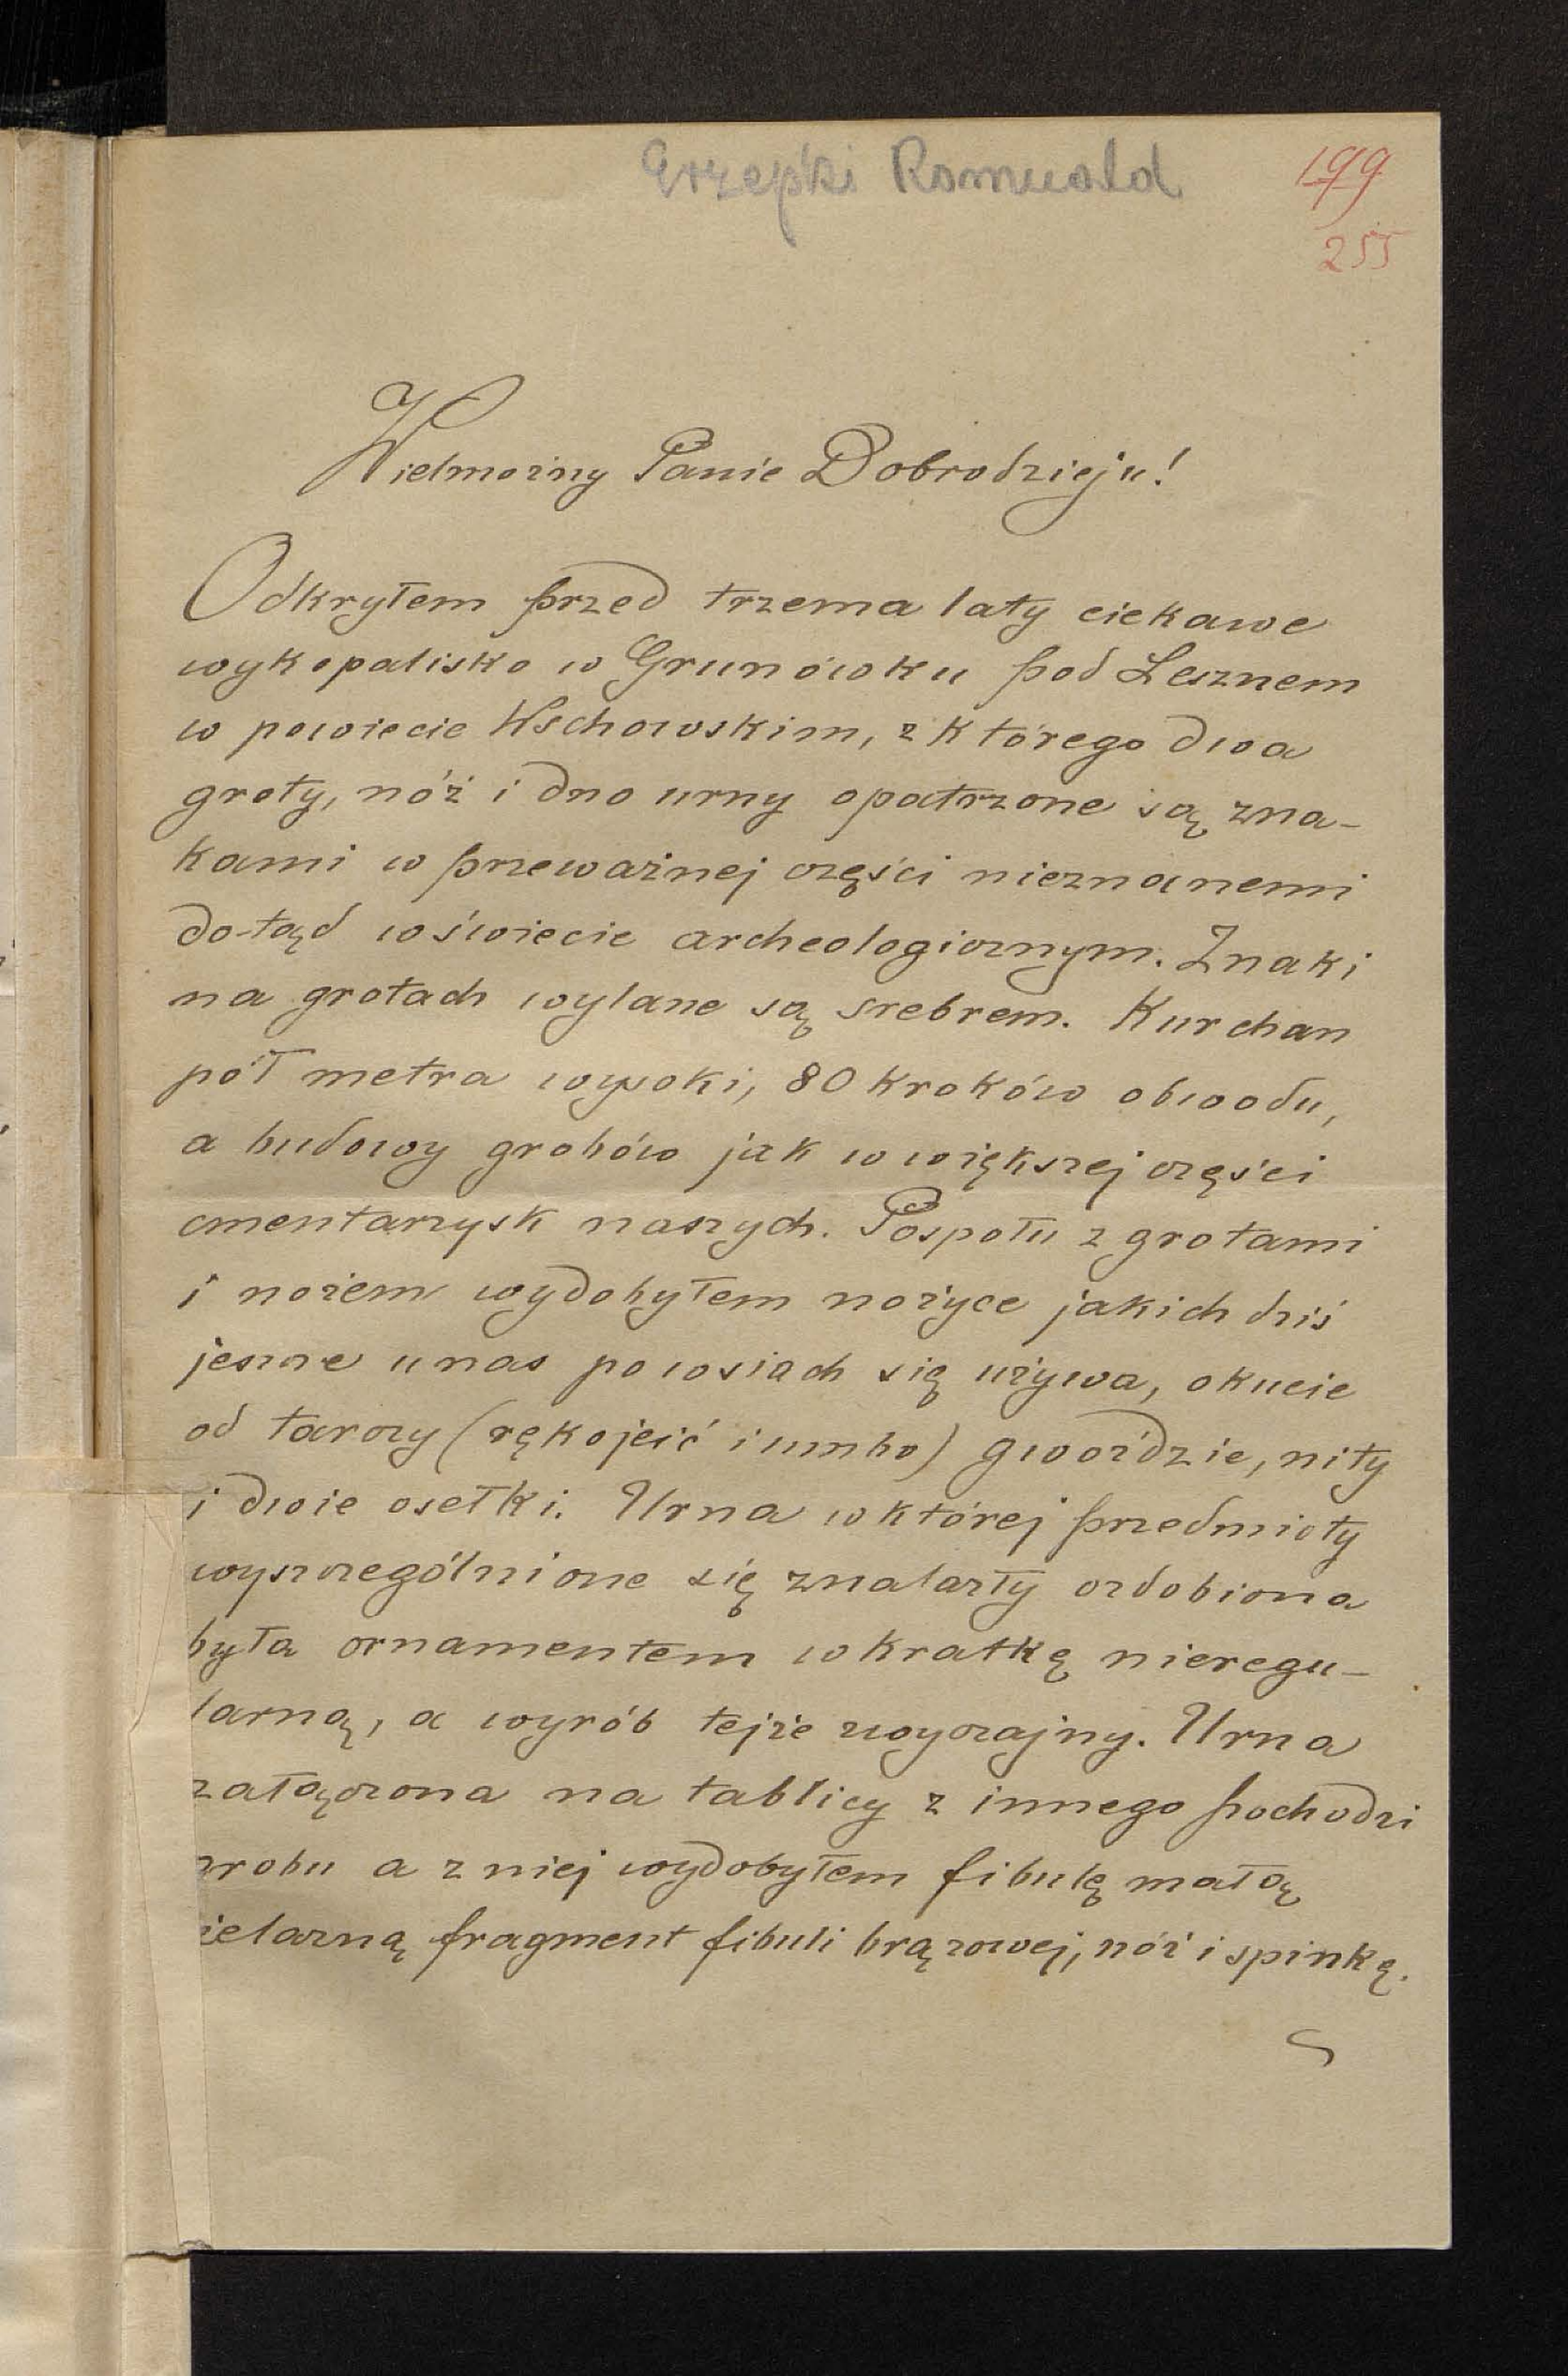 Erzepki Romuald
199
255
Wielmożny Panie Dobrodzieju!
Odkryłem przed trzema laty ciekawe
wykopalisko w Grunówku pod Lesznem
w powiecie Wschowskim, z którego dwa
groty, nóż i dno urny opatrzone są zna-
kami w przeważnej części nieznanemi
dotąd w świecie archeologicznym. Znaki
na grotach wylane są srebrem. Kurchan
pół metra wysoki, 80 kroków obwodu,
a budowy grobów jak w większej części
cmentarzysk naszych. Pospołu z grotami
i nożem wydobyłem nożyce jakich dziś
jeszcze u nas po wsiach się używa, okucie
od tarczy (rękojeść i umbo) gwoździe, nity
i dwie osełki. Urna w której przedmioty
wyszczególnione się znalazły ozdobiona
była ornamentem w kratkę nieregu-
larną, a wyrób tejże zwyczajny. Urna
załączona na tablicy z innego pochodzi
grobu a z niej wydobyłem fibulę małą
żelazną fragment fibuli brązowej, nóż i spinkę.